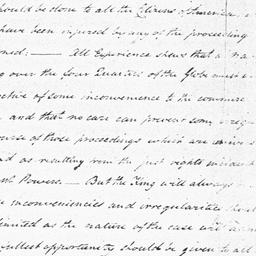 should be done to all the Citizens of America,
have been injured by any of the proceeding
oned: — All Experience shews that a na-
g over the four Quarters of the Globe must
ective of some inconvenience to the commerce
— and that no care can prevent some irregu
ourse of those proceedings which are univers
d as resulting from the just rights incident
nt Powers. — But the King will always
inconveniencies and irregularities should
limited as the nature of the case will adm
fullest opportunity should be given to all